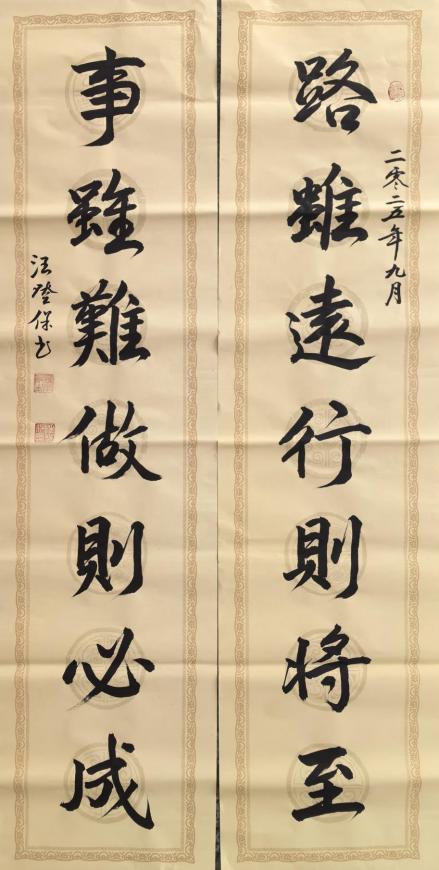 路雖遠行則將至
二零二五年九月
事雖難做則必成
汪登保书